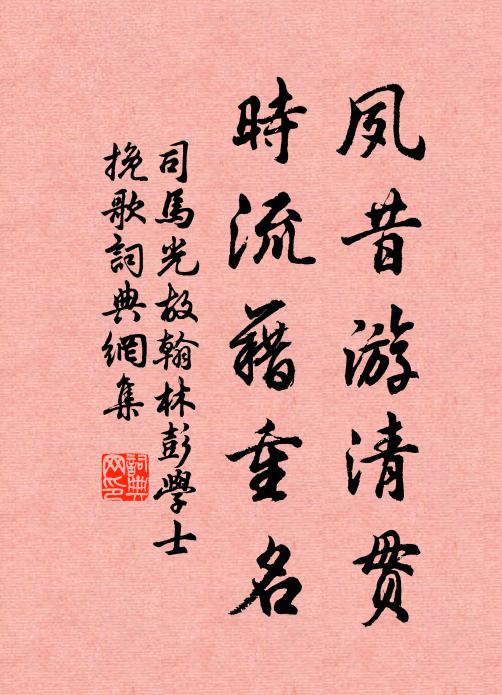 夙昔游清贯
時流藉重名
司馬光故翰林彭學士
挽歌詞典網集
詞典網印